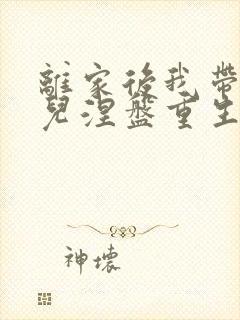 離家後我帶
兒涅盤重生
神壞